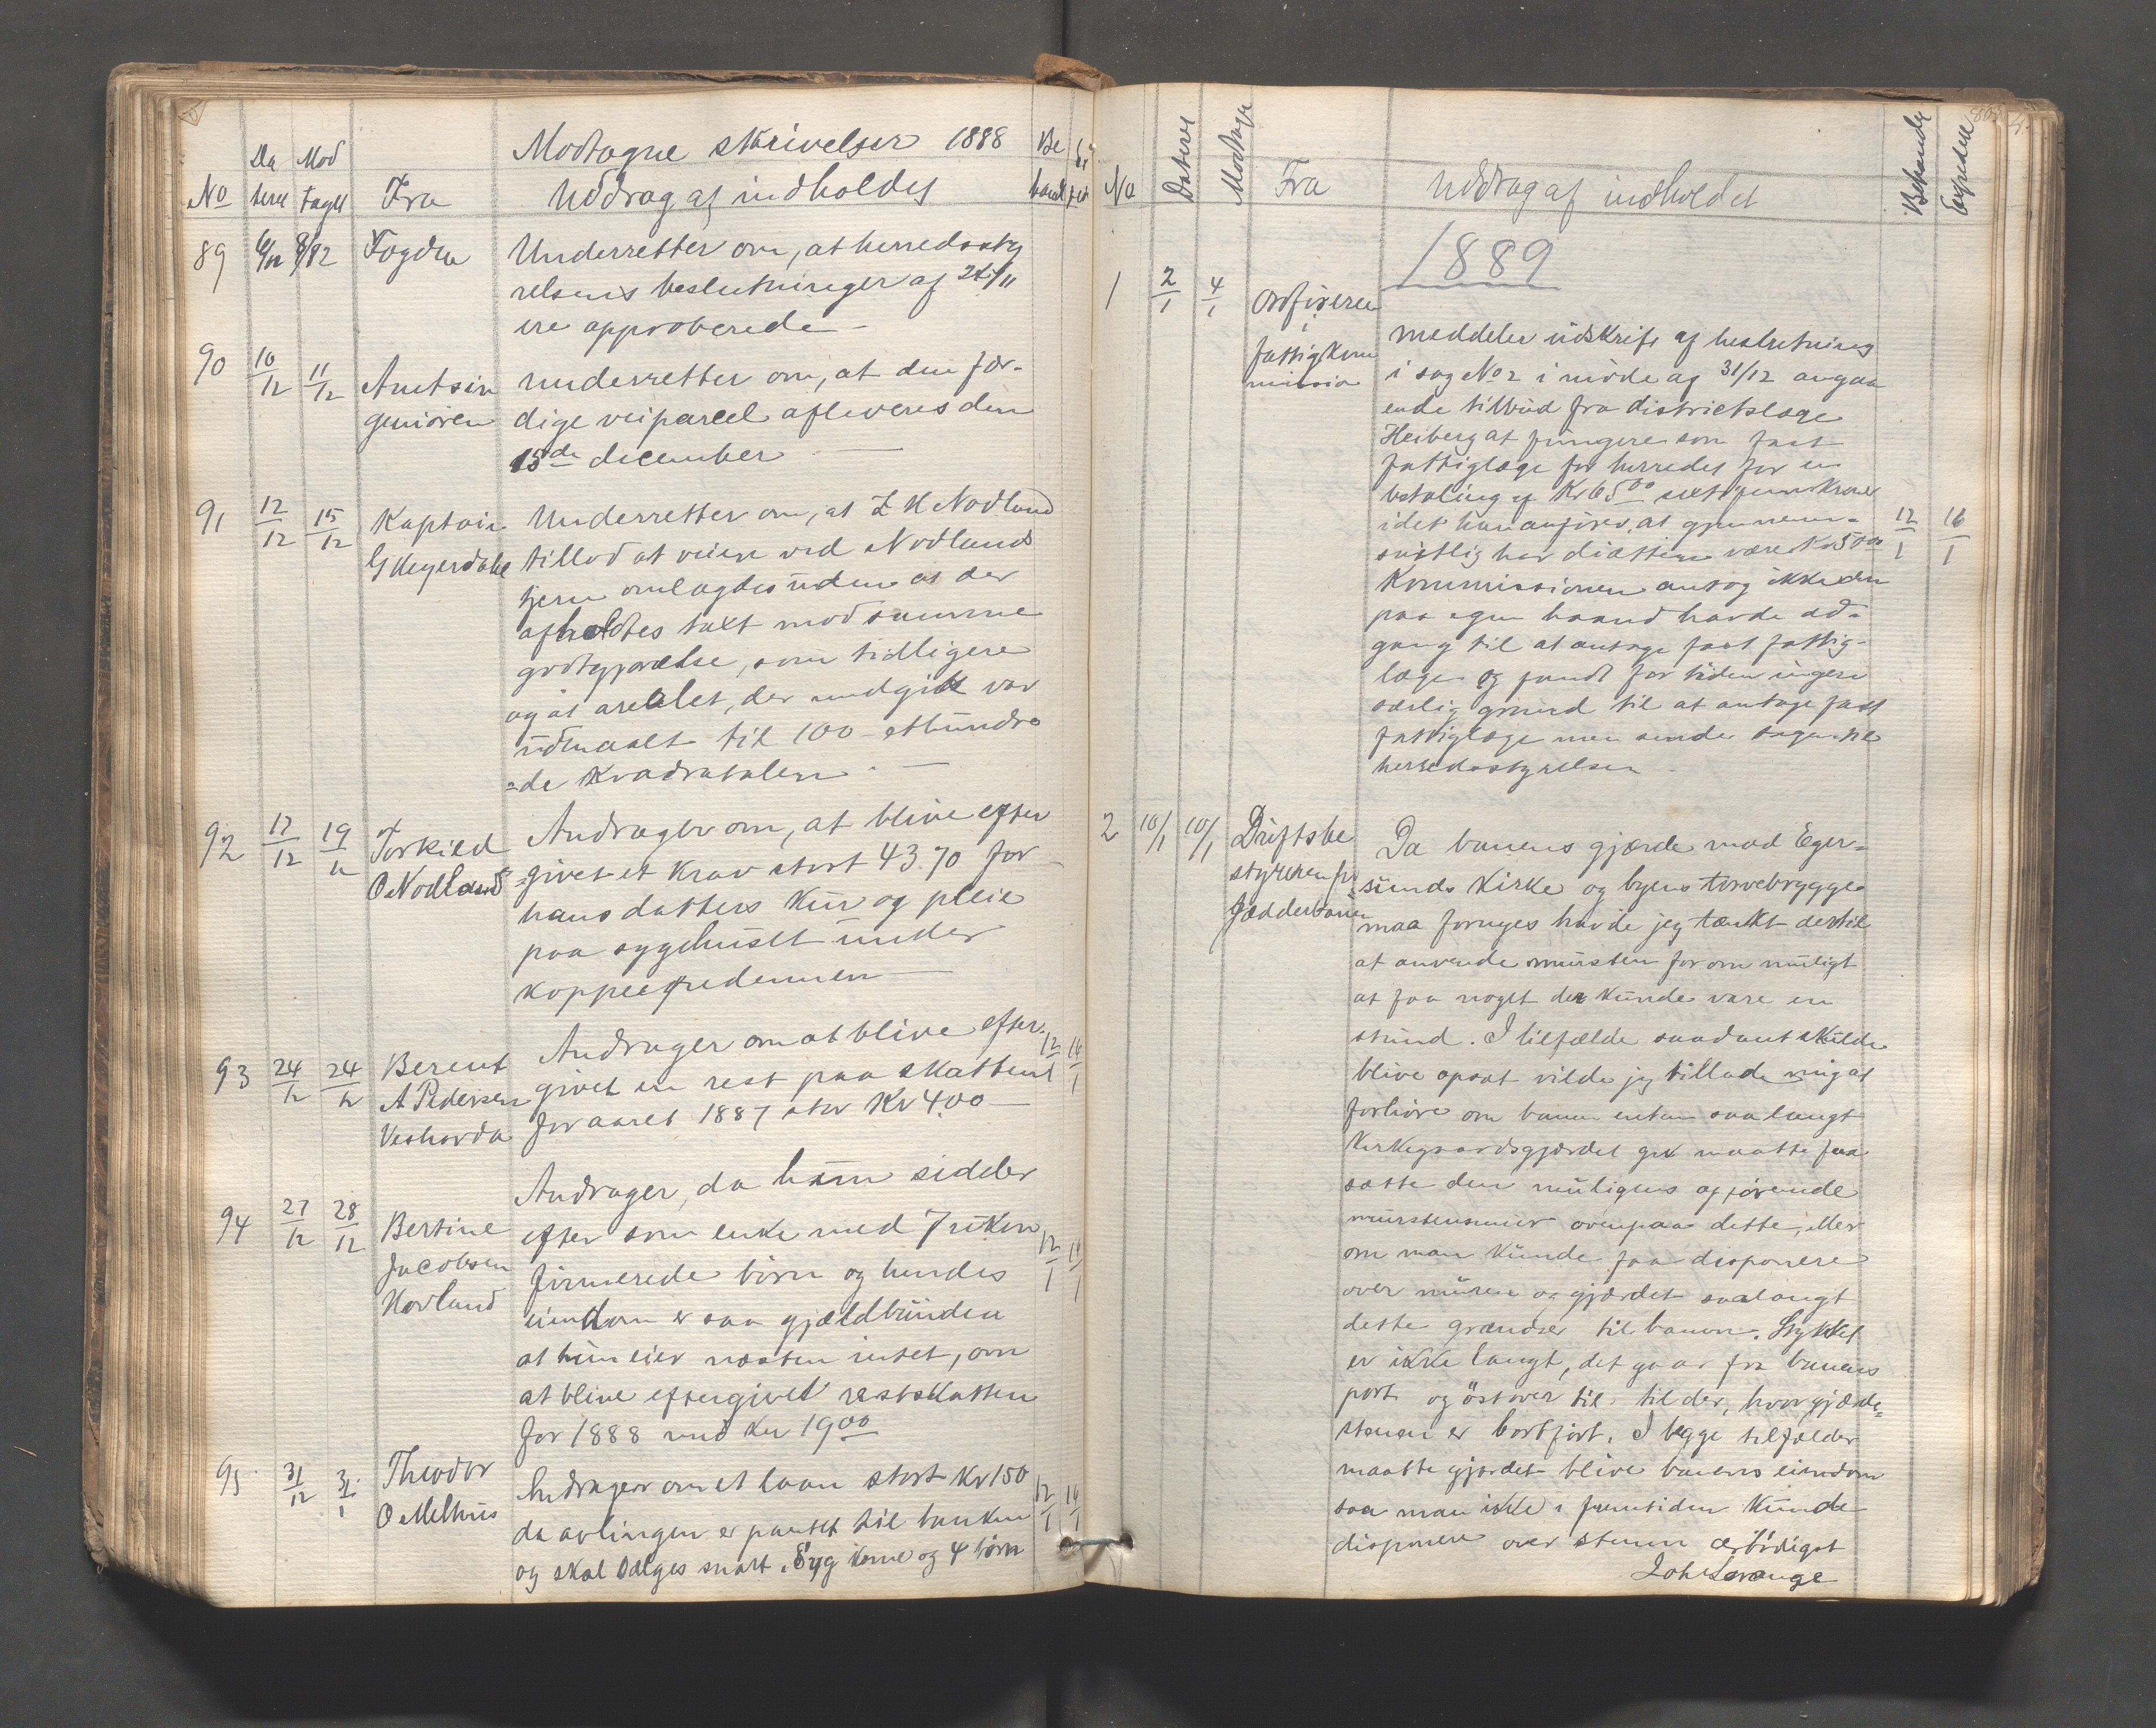 Modtagne skrivelser 1888
No Da teret Mod taget Fra Uddrag af indholdet Be handl
89 6/12 8/12 Fogden Underretter om, at herredssty
relsens beslutninger af 24/11
ere approberede
90 10/12 11/12 Amtsin Underretter om, at den fær-
geniøren dige veiparcel afleveres den
15de december
91 12/12 15/12 Kaptain Underretter om, at Z K Nodland
G Meyerdahl tillod at veien ved Nodlands
tjern omlagdes uden at der
afholdtes taxt mod samme
godtgjørelse, som tidligere
og at arealet, der medgik var
udmaalt til 100 - ethundre
=de kvadratalen
92 17/12 19/12 Torkild Andrager om, at blive efter
O Nodland =givet et krav stort 43.70 for
hans datters kur og pleie
paa sygehuset under
koppeepedemien
93 24/12 24/12 Berent Andrager om at blive efter- 12/1 16/1
A Pedersen givet en rest paa skatten
Veshovda for aaret 1887 stor Kr 4.00
94 27/12 28/12 Andrager, da hun sidder
Bertine efter som enke med 7 ukon 12/1 16/1
Jacobsen firmerede børn og hendes
Hovland eiendom er saa gjældbunden
at hun eier næsten intet, om
at blive eftergivet restskatten
for 1888 med Kr 19.00
95 31/12 3/1 Theodor Andrager om et laan stort Kr 150 12/1 16/1
O Melhus da avlingen er pantet til banken
og skal sælges snart. Syg kone og 4 børn
No Dateret Modtaget Fra Uddrag af indholdet Behandlet Exspederet
1889
1 2/1 4/1 Ordføreren
i meddeler udskrift af beslutning
fattigkom i sag No 2 i møde af 31/12 angaa
mission ende tilbud fra districtslæge
Heiberg at fungere som fast
fattiglæge for herredet for en
betaling af Kr 65 00 sextifem kroner
idet han anfører, at gjennem- 12/1 16/1
snitlig har diætten været Kr 50 00
Kommissionen antog ikke den
paa egen haand havde ad-
gang til at antage fast fattig-
læge og fandt for tiden ingen
særlig grund til at antage fast
fattiglæge men sender sagen til
herredsstyrelsen
2 10/1 10/1 Driftsbe Da banens gjærde mod Eger-
styreren for sunds kirke og byens torvebrygge
Jædderbanen maa fornyes havde jeg tænkt dertil
at anvende mursten for om muligt
at faa noget der kunde vare en
stund. I tilfælde saadant skulde
blive opsat vilde jeg tillade mig at
forhøre om banen enten saa langt
kirkegaardsgjærdet gik maatte faa
sætte den muligens opførende
murstensmur ovenpaa dette, eller
om man kunde faa disponere
over muren og gjærdet saalangt
dette grændser til banen. Stykket
er ikke langt, det gaar fra banens
port og østover til til der, hvor gjærde=
stenen er bortført. I begge tilfælder
maatte gjærdet blive banens eiendom
saa man ikke i fremtiden kunde
disponere over stenen ærbødigst
Joh Lorange